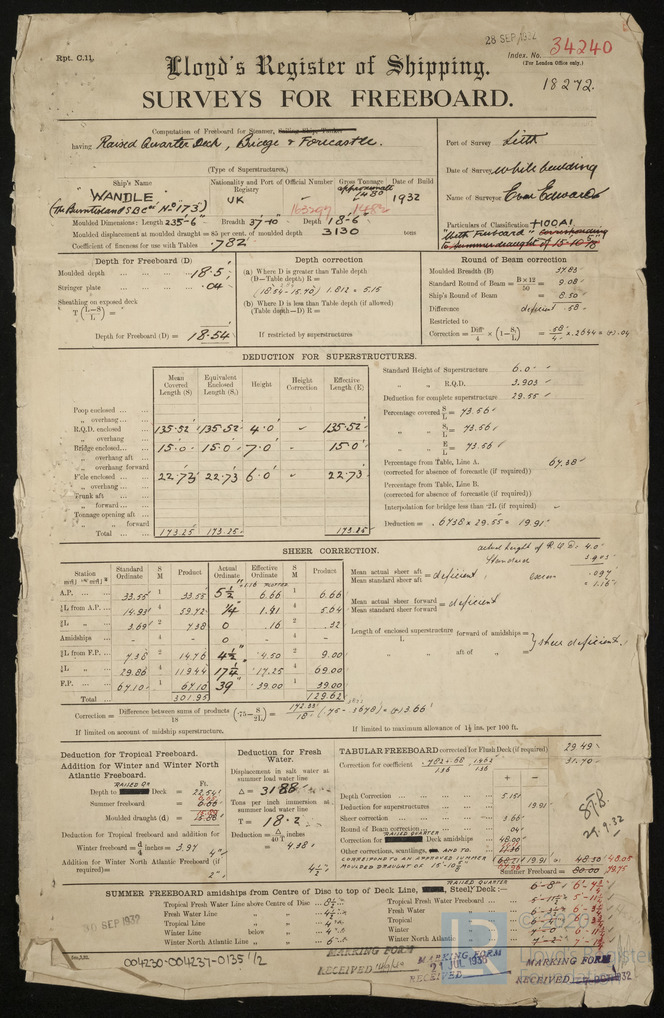 28 SEP 1932
Index. No. 34240
(For London Office only.)
Rpt. C.11.
18272.
Lloyd's Register of Shipping.
SURVEYS FOR FREEBOARD.
Computation of Freeboard for Summer,
having Raised Quarter Deck, Bridge & Forecastle.
(Type of Superstructures.)
Port of Survey Leith
Date of Survey While building
Name of Surveyor Evan Edwards
Particulars of Classification +100A1
"With Freeboard" corresponding
to summer draught of 15'-10 5/8"
Ship's Name Nationality and Port of Registry Official Number Gross Tonnage Date of Build
"WANDLE" UK approximate 1480 1932
(The Burntisland S.B.Co's No 175) 163297 1482
Moulded Dimensions: Length 235'-6" Breadth 37'-10" Depth 18'-6"
Moulded displacement at moulded draught = 85 per cent. of moulded depth 3130 tons
Coefficient of fineness for use with Tables .782
Depth for Freeboard (D)
Moulded depth 18.5
Stringer plate .04
Sheathing on exposed deck
T (L-S / L) =
Depth for Freeboard (D) = 18.54
Depth correction
(a) Where D is greater than Table depth
(D—Table depth) R =
(18.54-15.70) 1.812 = 5.15
(b) Where D is less than Table depth (if allowed)
(Table depth—D) R =
If restricted by superstructures
Round of Beam correction
Moulded Breadth (B) 37.83
Standard Round of Beam = B×12/50 = 9.08
Ship's Round of Beam = 8.50
Difference deficient .58
Restricted to
Correction = Diff/4 × (1-S₁/L) = .58/4 × .2644 = (+) .04
DEDUCTION FOR SUPERSTRUCTURES.
Mean Covered Length (S) Equivalent Enclosed Length (S₁) Height Height Correction Effective Length (E)
Poop enclosed
„ overhang
R.Q.D. enclosed 135.52 135.52 4.0 135.52
„ overhang
Bridge enclosed 15.0 15.0 7.0 15.0
„ overhang aft
„ overhang forward
F'cle enclosed 22.73 22.73 6.0 22.73
„ overhang
Trunk aft
„ forward
Tonnage opening aft
„ „ forward
Total 173.25 173.25 173.25
Standard Height of Superstructure 6.0
„ „ R.Q.D. 3.903
Deduction for complete superstructure 29.55
Percentage covered S/L = 73.56
„ „ S₁/L = 73.56
„ „ E/L = 73.56
Percentage from Table, Line A. 67.38
(corrected for absence of forecastle (if required))
Percentage from Table, Line B.
(corrected for absence of forecastle (if required))
Interpolation for bridge less than ·2L (if required)
Deduction = .6738 × 29.55 = 19.91
SHEER CORRECTION.
Station Standard Ordinate S M Product Actual Ordinate Effective Ordinate S M Product
A.P. 33.55 1 33.55 5½ 6.66 1 6.66
⅙L from A.P. 14.93 4 59.72 ¼ 1.41 4 5.64
⅓L „ 3.69 2 7.38 0 .16 2 .32
Amidships - 4 - 0 - 4 -
⅓L from F.P. 7.38 2 14.76 4½ 4.50 2 9.00
⅙L „ 29.86 4 119.44 17¼ 17.25 4 69.00
F.P. 67.10 1 67.10 39 39.00 1 39.00
Total 301.95 129.62
actual height of R.Q.D. 4.0
Standard 3.903
excess .097
= 1.16"
Mean actual sheer aft / Mean standard sheer aft = deficient
Mean actual sheer forward / Mean standard sheer forward = deficient
Length of enclosed superstructure / L forward of amidships =
„ „ aft of „ =
} sheer deficient
Correction = Difference between sums of products / 18 (·75 - S/2L) = 172.33/18 (.75 - .3678) = (+) 3.66
If limited on account of midship superstructure.
If limited to maximum allowance of 1½ ins. per 100 ft.
Deduction for Tropical Freeboard.
Addition for Winter and Winter North Atlantic Freeboard.
RAISED Qr
Depth to Deck = 22.54
Summer freeboard = 6.66
Moulded draught (d) =
Deduction for Tropical freeboard and addition for Winter freeboard = d/4 inches = 3.97
4"
Addition for Winter North Atlantic Freeboard (if required) = 2"
Deduction for Fresh Water.
Displacement in salt water at summer load water line
Δ = 3188
Tons per inch immersion at summer load water line
T = 18.2
Deduction = Δ/40 T inches
= 4.38
4½"
TABULAR FREEBOARD corrected for Flush Deck (if required) 29.49
Correction for coefficient .782+.68/1.36 1.462/1.36 31.70
+ -
Depth Correction 5.15
Deduction for superstructures 19.91
Sheer correction 3.66
Round of Beam correction .04
RAISED QUARTER
Correction for Deck amidships 48.00
Other corrections, scantlings, AND TO
CORRESPOND TO AN APPROVED SUMMER
MOULDED DRAUGHT OF 15'-10 5/8"
19.91 48.30 48.05
Summer Freeboard = 80.00 79.75
29.9.32
SUMMER FREEBOARD amidships from Centre of Disc to top of Deck Line, Steel Deck:—
RAISED QUARTER
6'-8" 6'-7¾"
Tropical Fresh Water Line above Centre of Disc 8½" Tropical Fresh Water Freeboard
Fresh Water Line „ „ 4½" Fresh Water „
Tropical Line „ „ 4" Tropical „
Winter Line below „ 4" Winter „ 7'-0"
Winter North Atlantic Line „ „ 6" Winter North Atlantic „ 7'-2"
30 SEP 1932
004230-004237-0135 1/2
MARKING FORM
RECEIVED
MARKING FORM
RECEIVED
MARKING FORM
RECEIVED
LR